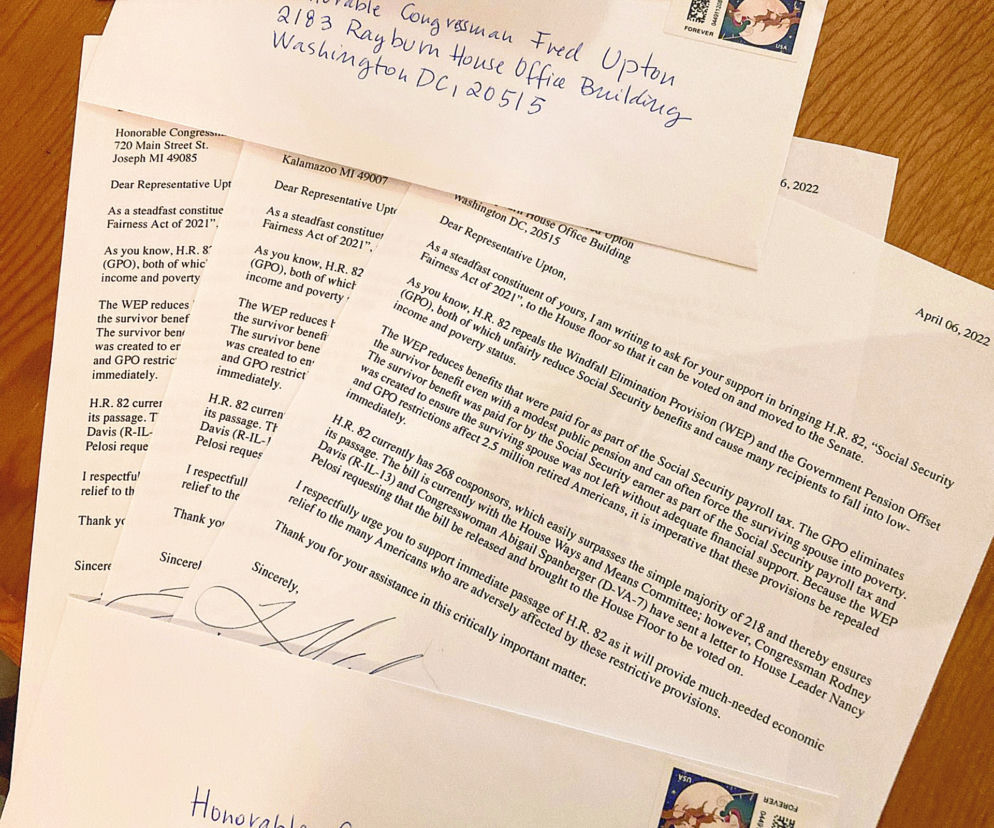 Congressman Fred Upton
2183 Rayburn House Office Building
Washington DC, 20515
FOREVER
USA
Honorable
720 Main Street St.
Joseph MI 49085
Dear Representative
As a steadfast
Fairness Act of 2021",
As you know, H.R.
(GPO), both of
income and poverty
The WEP reduces
the survivor
The survivor
was created to
and GPO
immediately.
H.R. 82
its passage.
Davis (R-IL-
Pelosi
I
relief to
Thank
Kalamazoo MI 49007
Dear Representative
As a steadfast
Fairness Act of 2021",
As you know, H.R. 82
(GPO), both of which
income and poverty
The WEP reduces
the survivor
The survivor
was created to
and GPO
immediately.
H.R. 82
its passage.
Davis (R-IL-
Pelosi
I
relief to the
Thank
6, 2022
April 06, 2022
Upton
House Office Building
Washington DC, 20515
Dear Representative Upton,
As a steadfast constituent of yours, I am writing to ask for your support in bringing H.R. 82, "Social Security
Fairness Act of 2021", to the House floor so that it can be voted on and moved to the Senate.
As you know, H.R. 82 repeals the Windfall Elimination Provision (WEP) and the Government Pension Offset
(GPO), both of which unfairly reduce Social Security benefits and cause many recipients to fall into low-
income and poverty status.
The WEP reduces benefits that were paid for as part of the Social Security payroll tax. The GPO eliminates
the survivor benefit even with a modest public pension and can often force the surviving spouse into poverty.
The survivor benefit was paid for by the Social Security earner as part of the Social Security payroll tax and
was created to ensure the surviving spouse was not left without adequate financial support. Because the WEP
and GPO restrictions affect 2.5 million retired Americans, it is imperative that these provisions be repealed
immediately.
H.R. 82 currently has 268 cosponsors, which easily surpasses the simple majority of 218 and thereby ensures
its passage. The bill is currently with the House Ways and Means Committee; however, Congressman Rodney
Davis (R-IL-13) and Congresswoman Abigail Spanberger (D-VA-7) have sent a letter to House Leader Nancy
Pelosi requesting that the bill be released and brought to the House Floor to be voted on.
I respectfully urge you to support immediate passage of H.R. 82 as it will provide much-needed economic
relief to the many Americans who are adversely affected by these restrictive provisions.
Thank you for your assistance in this critically important matter.
Sincerely,
Honorable
USA
FOREVER